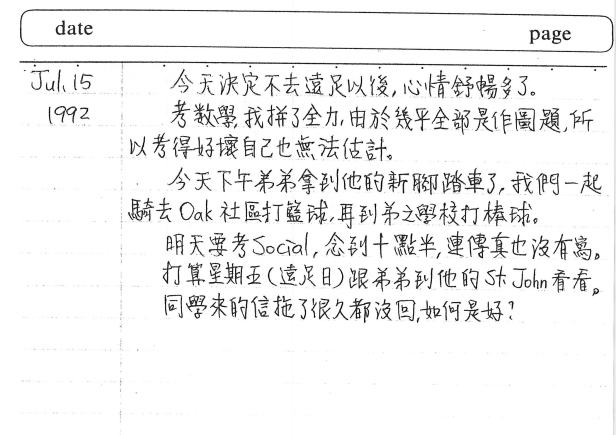 date
page
Jul, 15 今天決定不去遠足以後,心情舒暢多了。
1992 考数學,我拼了全力,由於幾乎全部是作圖題,所
以考得好壞自己也無法估計。
今天下午弟弟拿到他的新腳踏車了,我們一起
騎去 Oak 社區打籃球,再到弟之學校打棒球。
明天要考Social,念到十點半,連傳真也沒有寫。
打算星期五(遠足日)跟弟弟到他的 St. John 看看。
同學來的信拖了很久都沒回,如何是好?